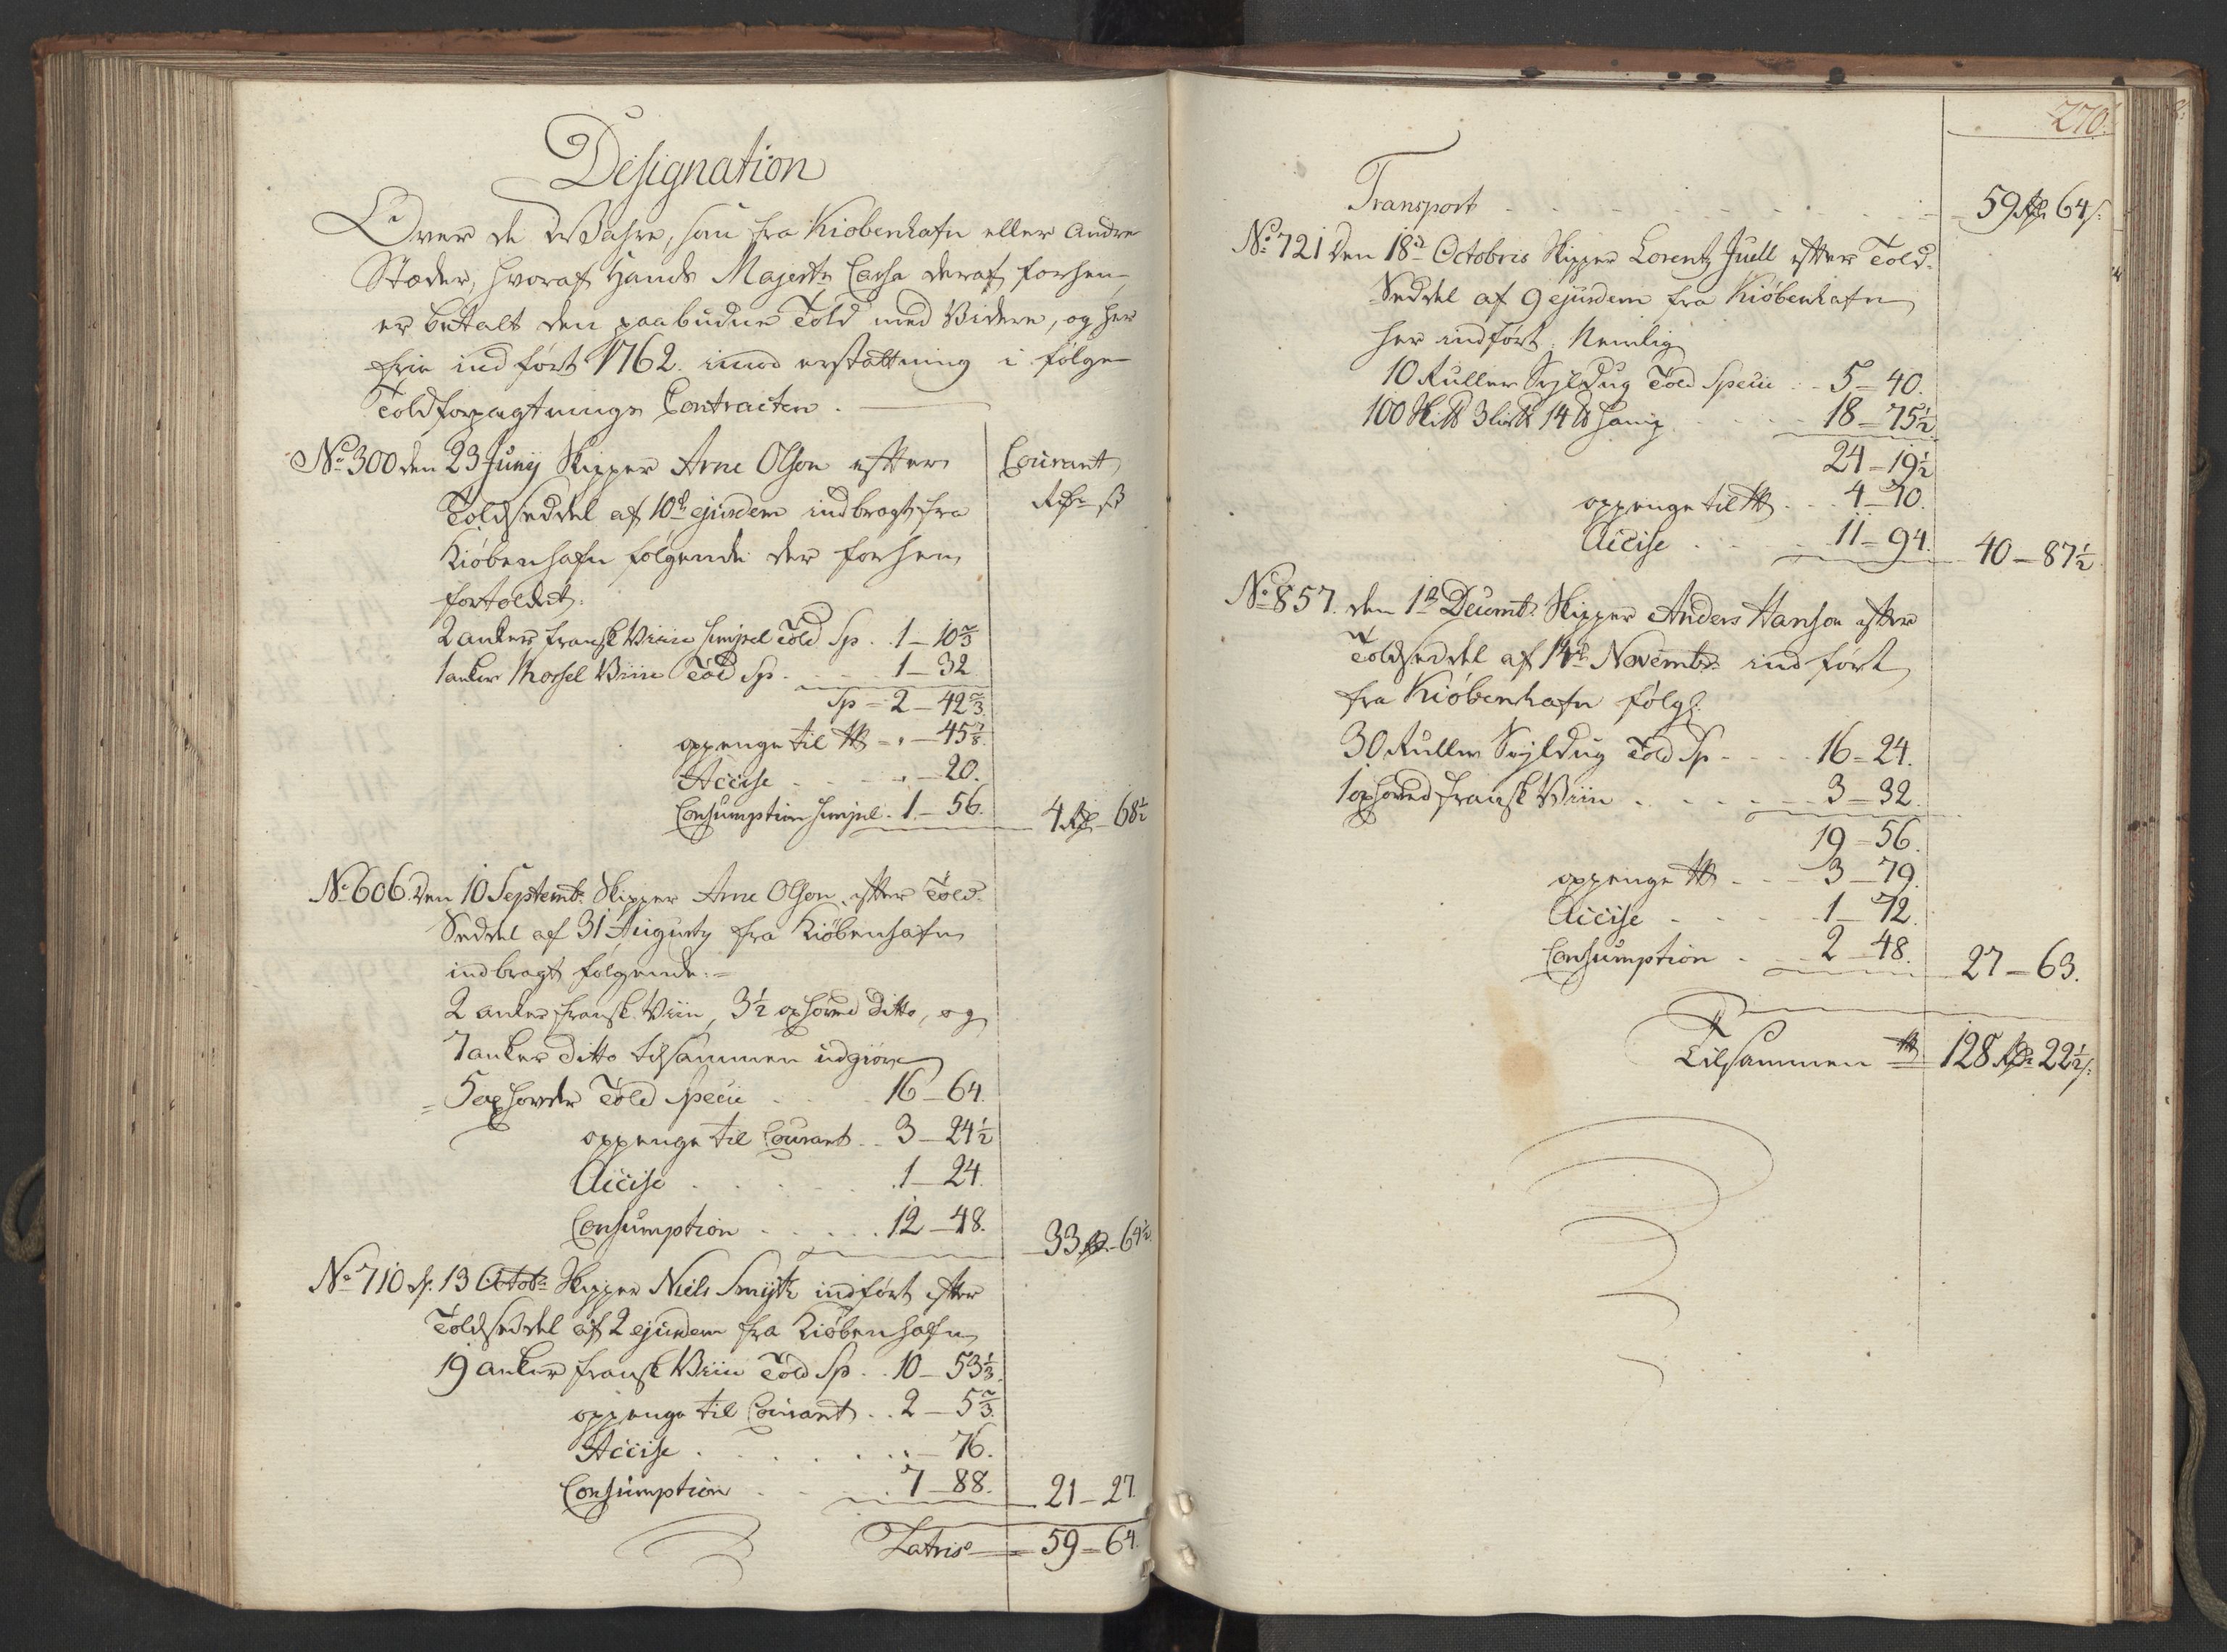 Designation
Over de Wahre, som fra Kiobenhafn eller andre
Stæder, hvoraf Hands Majestts Cassa deraf forhen
er betalt den paabudne Told med Videre, og her
frie indført 1762. imod erstattning i følge
Toldforpagtnings Contracten.
No 300 den 23 Junÿ Skipper Arne Olson efter
Courant
Toldseddel af 10de ejusdem indbragt fra
Rdr ß
Kiøbenhafn følgende der forhen
fortoldet:
2 anker fransk Viin simpel Told Sp. 1 – 10 2/3
1 anker Mossel Viin Told Sp. 1 – 32
Sp = 2 – 42 2/3
oppenge til #. – 45 7/8
Accise – 20.
Consumption simpel. 1 – 56. 4 Rdr – 68 1/2
No 606. den 10 Septembr. Skipper Arne Olson, efter Told-
Seddel af 31 Augusty fra Kiøbenhafn
indbragt følgende:=
2 anker fransk Viin, 3 1/2 oxhoved Ditto, og
7 anker Ditto tilsammen udgiøre
= 5 oxhoveder Told Specie 16 – 64.
oppenge til Courant. 3 – 24 1/2
Accise 1 – 24.
Consumption 12 – 48. 33 Rdr – 64 1/2
No 710 d. 13 Octobr Skipper Niels Smijth indført efter
Toldseddel af 2 ejusdem fra Kiøbenhafn
19 anker fransk Viin Told Sp. 10 – 53 1/3.
oppenge til Courant. 2 – 5 2/3.
Accise – 76.
Consumption 7 – 88. 21 – 27
Latris = 59 = 64.
270.
Transport 59 Rdr 64 ß.
No 721 den 18de Octobris Skipper Lorentz Juell efter Told-
Seddel af 9 ejusdem fra Kiøbenhafn
her indført, Nemlig
10 Ruller Sejldug Told Specie 5 – 40.
100 Sk℔ 3 lis℔ 14 ℔ 18 – 75 1/2
24 – 19 1/2
oppenge til # 4 – 70.
Accise 11 – 94. 40 – 87 1/2
No 857. den 1te Decembr. Skipper Anders Hanson efter
Toldseddel af 14de Novembr indført
fra Kiøbenhafn følg:
30 Ruller Sejldug Told Sp 16 = 24.
1 oxhoved fransk Viin 3 – 32.
19 – 56.
oppenge # 3 – 79.
Accise 1 – 72.
Consumption 2 – 48. 27 – 63.
Tilsammen # 128 Rdr 22 1/2 ß.